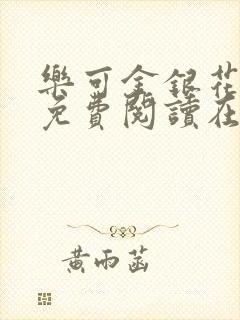 樂可金銀花
免費閱讀在
黃雨菡